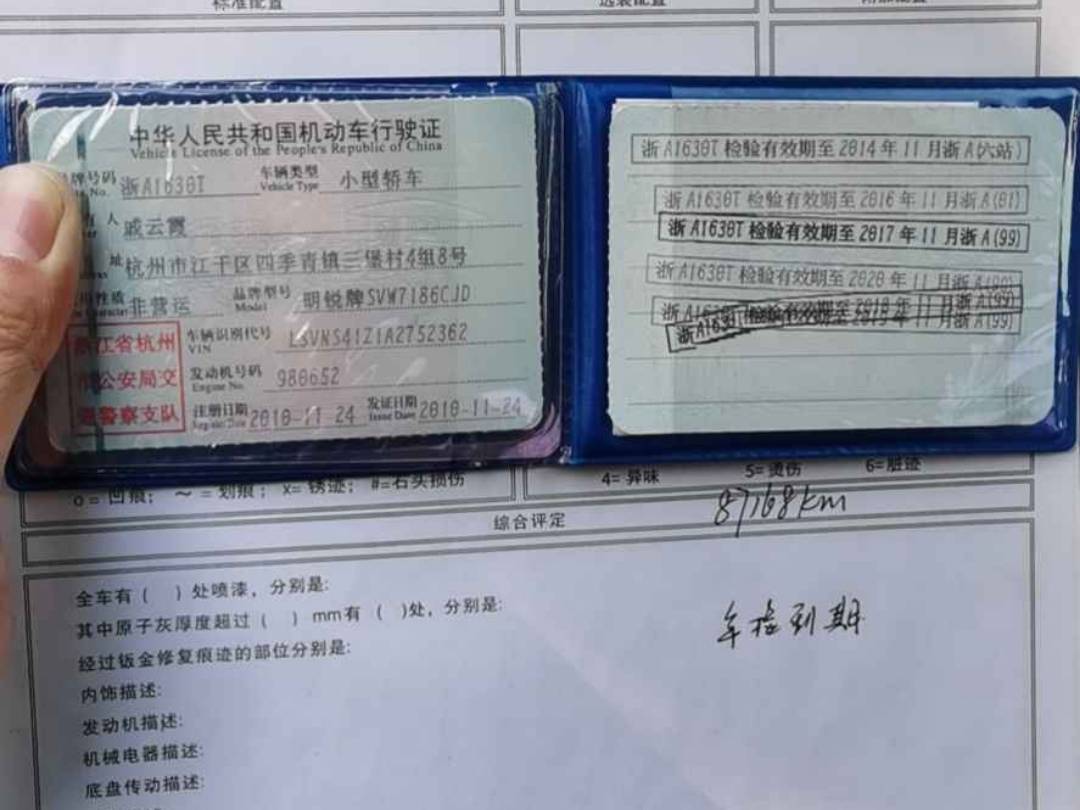 标准配置
选装配置
中华人民共和国机动车行驶证
Vehicle License of the People's Republic of China
牌号码 浙A1630T 车辆类型 小型轿车
No. Vehicle Type
人 戚云霞
址 杭州市江干区四季青镇三堡村4组8号
用性质 非营运 品牌型号 明锐牌SVW7186CJD
Character Model
江省杭州
公安局交
警察支队
车辆识别代号 LSVNS41Z1A2752362
VIN
发动机号码 980652
Engine No.
注册日期 2010-11-24 发证日期 2010-11-24
Issue Date
浙A1630T 检验有效期至2014年11月浙A(六站)
浙A1630T 检验有效期至2016年11月浙A(01)
浙A1630T 检验有效期至2017年11月浙A(99)
浙A1630T 检验有效期至2020年11月浙A(99)
检验有效期至2018年11月浙A(99)
浙A1630T 检验有效期至2019年11月浙A(99)
o=凹痕; ~=划痕; x=锈迹; #=石头损伤
4=异味 5=烫伤 6=脏迹
综合评定
87168km
全车有( )处喷漆,分别是:
其中原子灰厚度超过( )mm有( )处,分别是:
车检到期
经过钣金修复痕迹的部位分别是:
内饰描述:
发动机描述:
机械电器描述:
底盘传动描述: